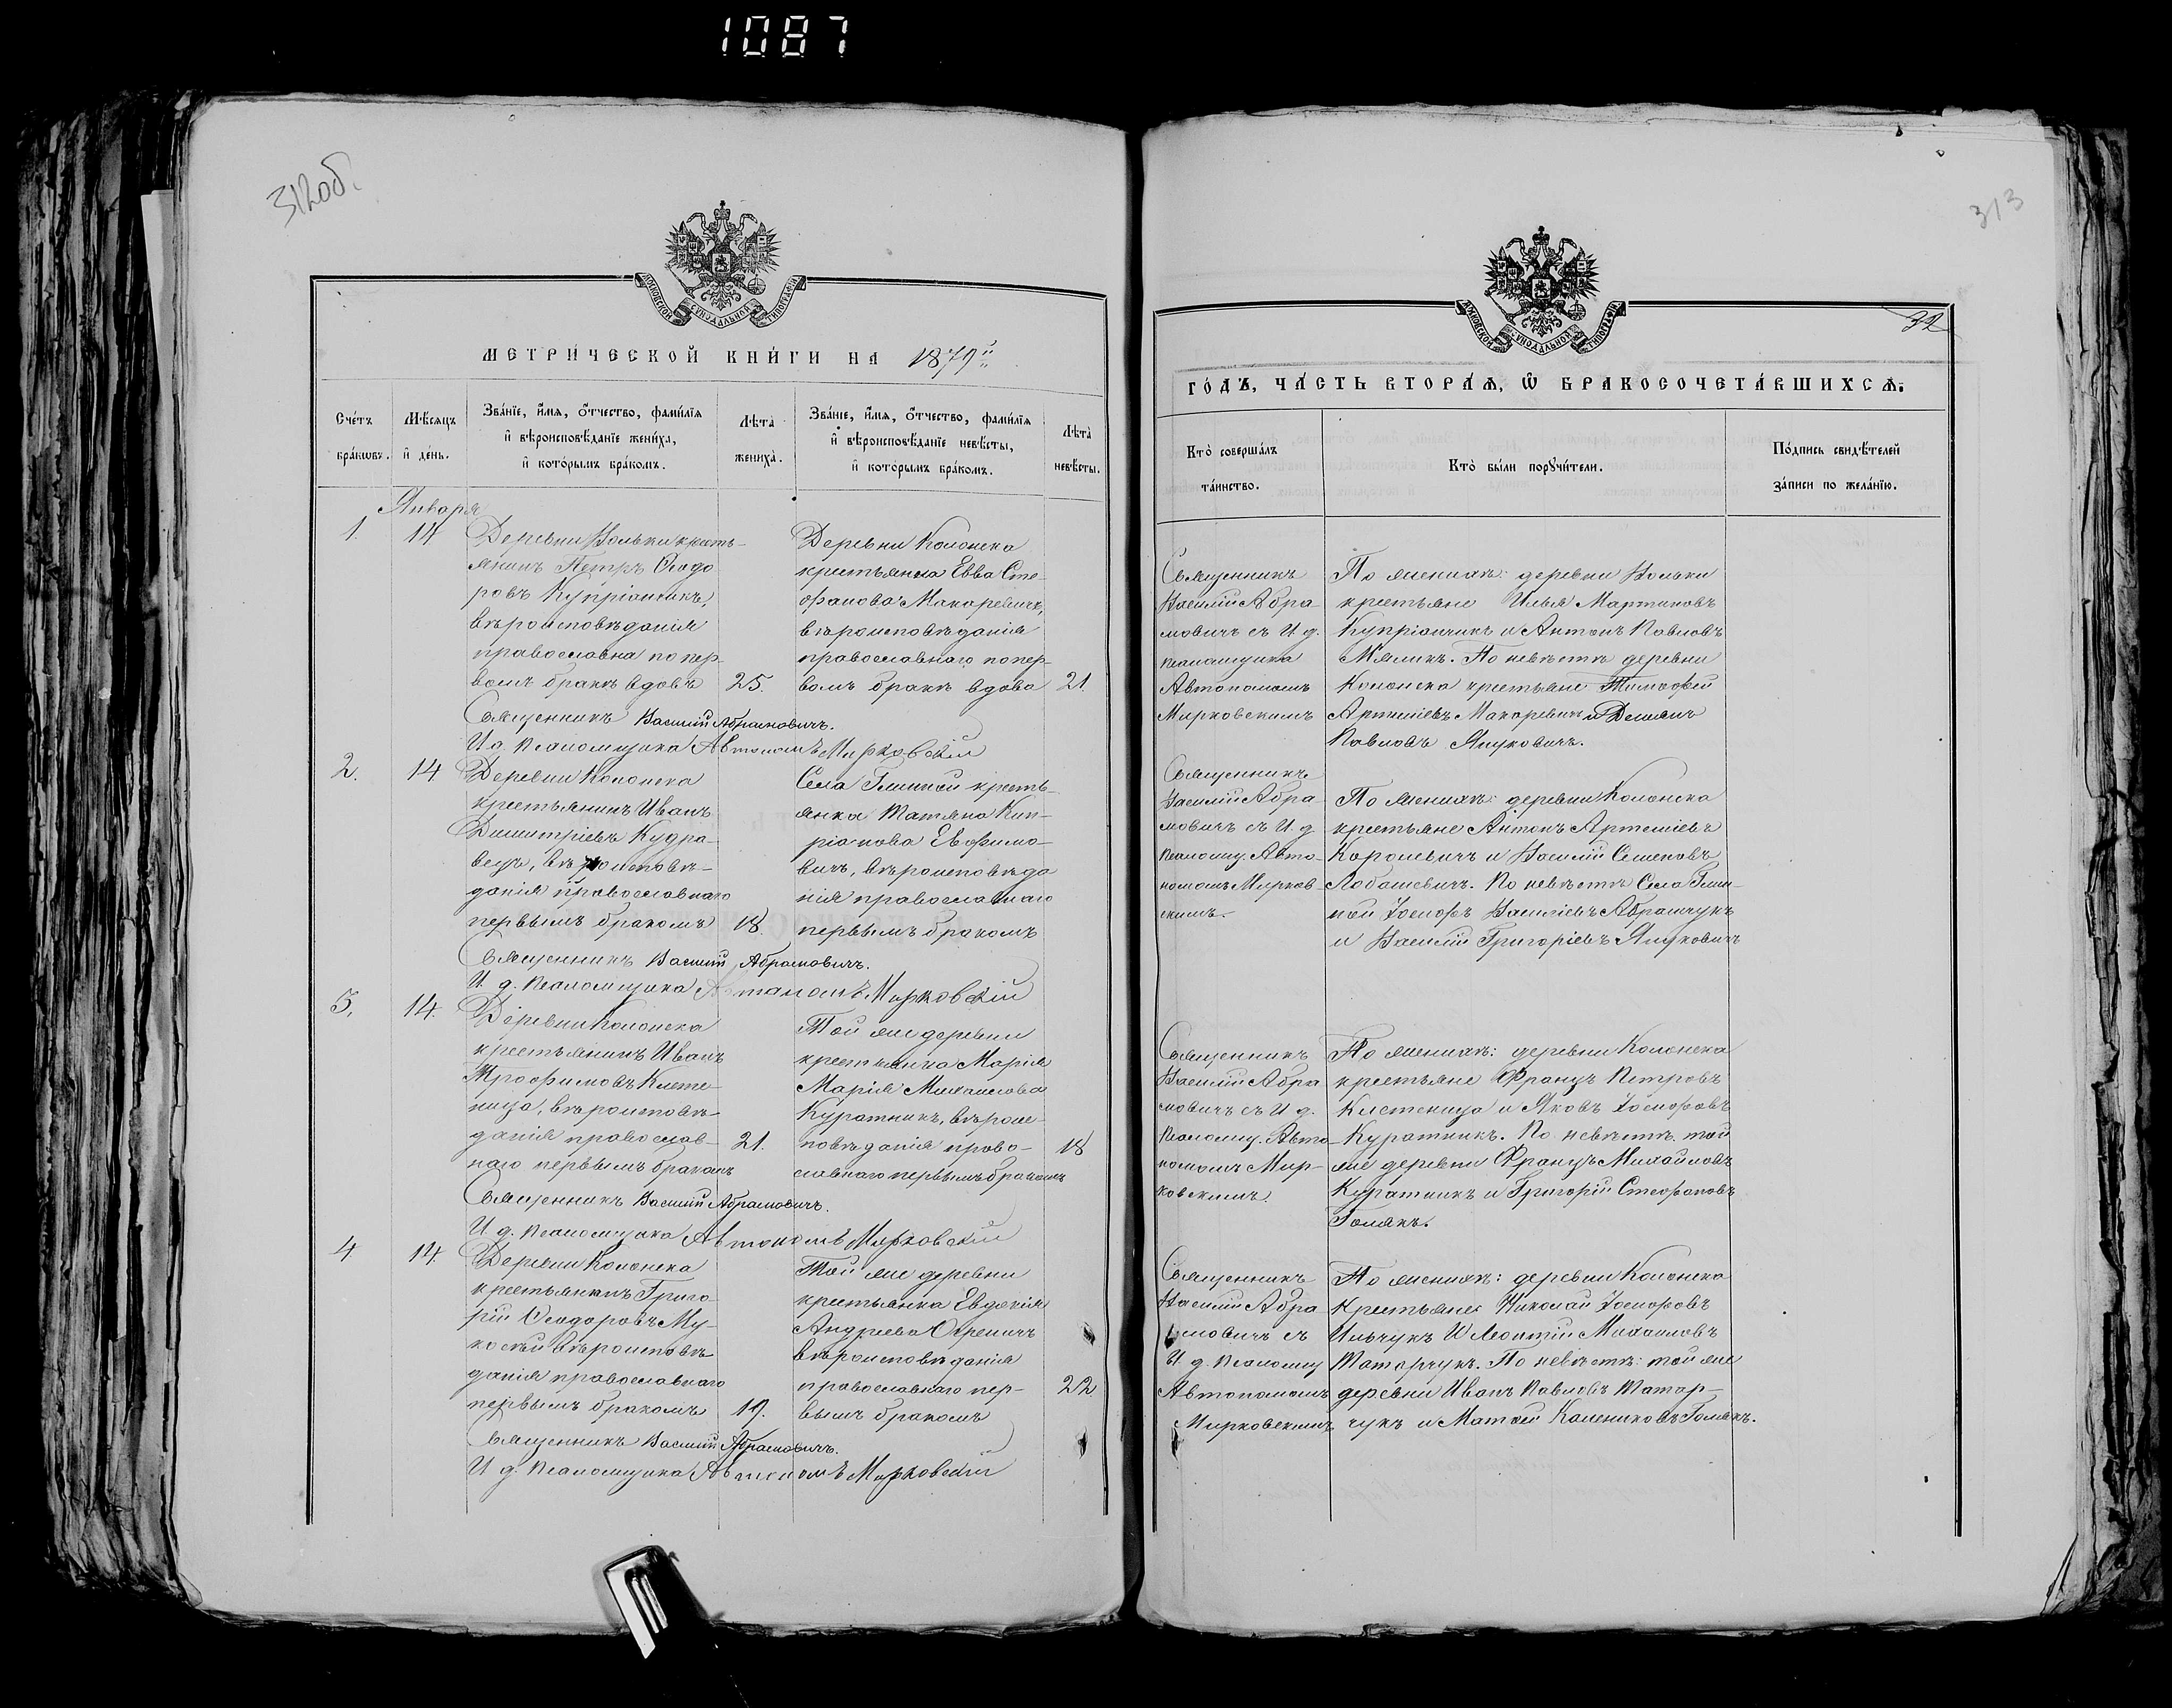 1087
312об.
313
32
МОСКОВСКОЙ СѴНОДАЛЬНОЙ ТИПОГРАФІИ
МЕТРИ́ЧЕСКОЙ КНИ́ГИ НА 1879й
Сче́тъ бра́кωвъ.
Мѣ́сяцъ и҆ де́нь.
Зва́нїе, и҆́мя, ѻ҆́тчество, фами́лїя
и҆ вѣроисповѣ́данїе жениха̀,
и҆ кото́рымъ бра́комъ.
Лѣта̀ жениха̀.
Зва́нїе, и҆́мя, ѻ҆́тчество, фами́лїя
и҆ вѣроисповѣ́данїе невѣ́сты,
и҆ кото́рымъ бра́комъ.
Лѣта̀ невѣ́сты.
Января
1. 14
Деревни Вольки кресть-
янинъ Петръ Ѳеодо
ровъ Купріанчикъ,
вѣроисповѣданія
православна по пер-
вомъ бракѣ вдовъ 25.
Деревни Колонска
крестьянка Евва Сте-
фанова Макаревичъ,
вѣроисповѣданія
православнаго по пер-
вомъ бракѣ вдова 21.
Священникъ Василий Абрамовичъ.
И д. Псаломщика Автономъ Мирковскій
2. 14
Деревни Колонска
крестьянинъ Иванъ
Димитріевъ Кудра-
вецъ, вѣроисповѣ-
данія православнаго
первымъ бракомъ 18.
Села Глинной кресть-
янка Матяна Кип-
ріанова Евфимо-
вичъ, вѣроисповѣда
нія православнаго
первымъ бракомъ
Священникъ Василий Абрамовичъ.
И. д. Псаломщика Автономъ Мирковскій
3. 14.
Деревни Колонска
крестьянинъ Иванъ
Трофимовъ Клете-
ница, вѣроисповѣ-
данія православ-
наго первымъ бракомъ 21.
Той же деревни
крестьянка Марія
Марія Михаилова
Куратникъ, вѣроис-
повѣданія право-
славнаго первымъ бракомъ 18
Священникъ Василий Абрамовичъ.
И д. Псаломщика Автономъ Мирковскій
4 14.
Деревни Колонска
крестьянинъ Григо-
рій Ѳеодоровъ Му-
косѣй вѣроисповѣ
данія православнаго
первымъ бракомъ 19.
Той же деревни
крестьянка Евдокія
Андреева
вѣроисповѣданія
православнаго пер-
вымъ бракомъ 22
Священникъ Василий Абрамовичъ.
И д. Псаломщика Автономъ Мирковскій
МОСКОВСКОЙ СѴНОДАЛЬНОЙ ТИПОГРАФІИ
ГО́ДЪ, ЧА́СТЬ ВТОРА́Я, Ѽ БРАКОСОЧЕТА́ВШИХСЯ:
Кто̀ соверша́лъ та́инство.
Кто̀ бы́ли порꙋчи́тели.
По́дпись свидѣ́телей
за́писи по жела́нїю.
Священникъ
Василій Абра
мовичъ съ И. д.
псаломщика
Автономомъ
Мирковскимъ
По женихѣ: деревни Вольки
крестьяне Илья Мартиновъ
Купріанчикъ и Антонъ Павловъ
Мяликъ. По невѣстѣ деревни
Колонска крестьяне Тимофей
Артеміевъ Макаревичъ и Демянъ
Павловъ Януковичъ.
Священникъ
Василій Абра
мовичъ съ И. д
псаломщ. Авто-
номомъ Мирков-
скимъ.
По женихѣ: деревни Колонска
крестьяне Антонъ Артеміевъ
Каролевичъ и Василій Семеновъ
Лобашевичъ. По невѣстѣ Села Глин-
ной Іосифъ Василіевъ Абрамчукъ
и Василій Григоріевъ Януковичъ
Священникъ
Василій Абра
мовичъ съ И д.
псаломщ. Авто-
номомъ Мир-
ковскимъ.
По женихѣ: деревни Колонска
крестьяне Францъ Петровъ
Клетеница и Яковъ Іосифовъ
Куратникъ. По невѣстѣ той
же деревни Францъ Михайловъ
Куратникъ и Григорій Стефановъ
Голякъ.
Священникъ
Василій Абра
мовичъ съ
И д. псаломщ
Автономомъ
Мирковскимъ
По женихѣ: деревни Колонска
Крестьяне Николай Іосифовъ
Ильчукъ и Леонтій Михаиловъ
Матарчукъ. По невѣстѣ: той же
деревни Иванъ Павловъ Матар-
чукъ и Матѳей Калениковъ Голякъ.